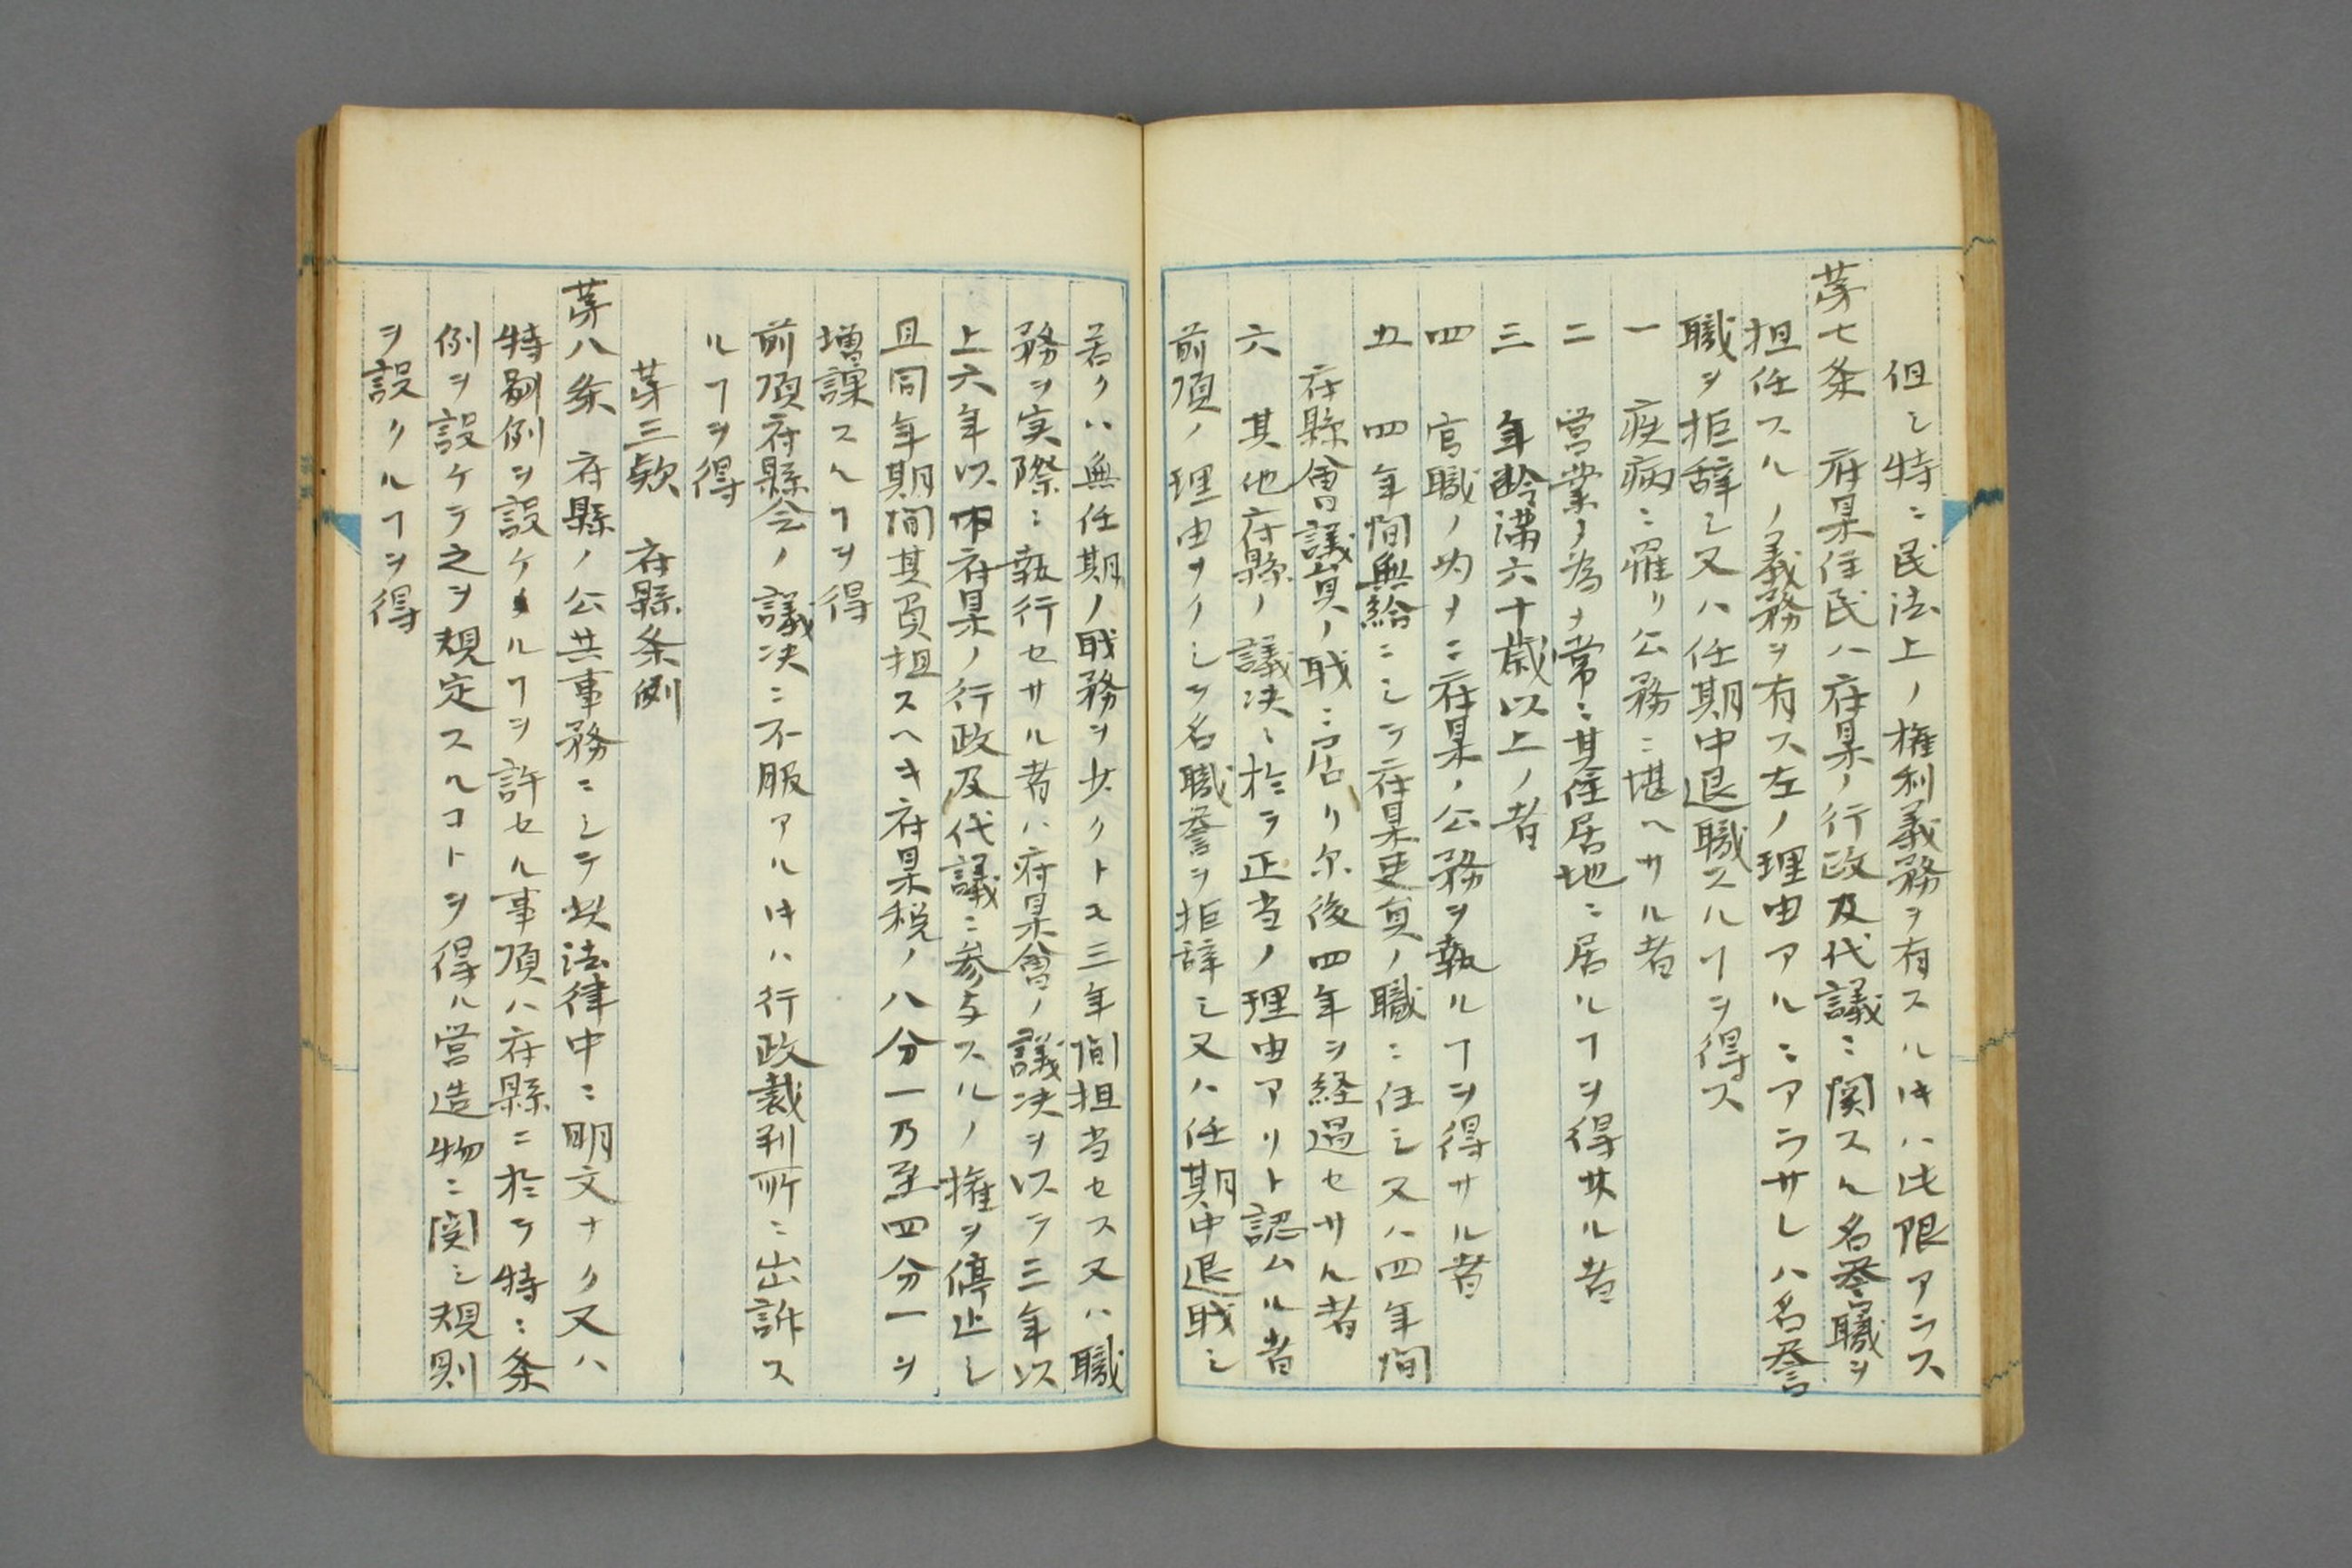 但シ特ニ民法上ノ権利義務ヲ有スルキハ此限アラス
第七条　府県住民ハ府県ノ行政及代議ニ関スル名誉職ヲ
担任スルノ義務ヲ有ス左ノ理由アルニアラサレハ名誉
職ヲ拒辞シ又ハ任期中退職スルヿヲ得ス
一　疾病ニ罹リ公務ニ堪ヘサル者
二　営業ノ為メ常ニ其住居地ニ居ルヿヲ得サル者
三　年齢満六十歳以上ノ者
四　官職ノ為メニ府県ノ公務ヲ執ルヿヲ得サル者
五　四年間無給ニシテ府県吏員ノ職ニ任シ又ハ四年間
府縣會議員ノ職ニ居リ尓後四年ヲ経過セサル者
六　其他府縣ノ議决ニ於テ正当ノ理由アリト認ムル者
前項ノ理由ナクシテ名職誉ヲ拒辞シ又ハ任期中退职シ
若クハ無任期ノ职務ヲ少クトモ三年間担当セス又ハ職
務ヲ実際ニ執行セサル者ハ府県會ノ議决ヲ以テ三年以
上六年以内府県ノ行政及代議ニ参与スルノ権ヲ停止シ
且同年期間其負担スヘキ府県税ノ八分一乃至四分一ヲ
増課スルヿヲ得
前項府縣会ノ議决ニ不服アルキハ行政裁判所ニ出訴ス
ルヿヲ得
第三欵　府縣条例
第八条　府縣ノ公共事務ニシテ此法律中ニ明文ナク又ハ
特別例ヲ設ケルヿヲ許セル事項ハ府縣ニ於テ特ニ条
例ヲ設ケテ之ヲ規定スルコトヲ得ル営造物ニ関シ規則
ヲ設クルヿヲ得